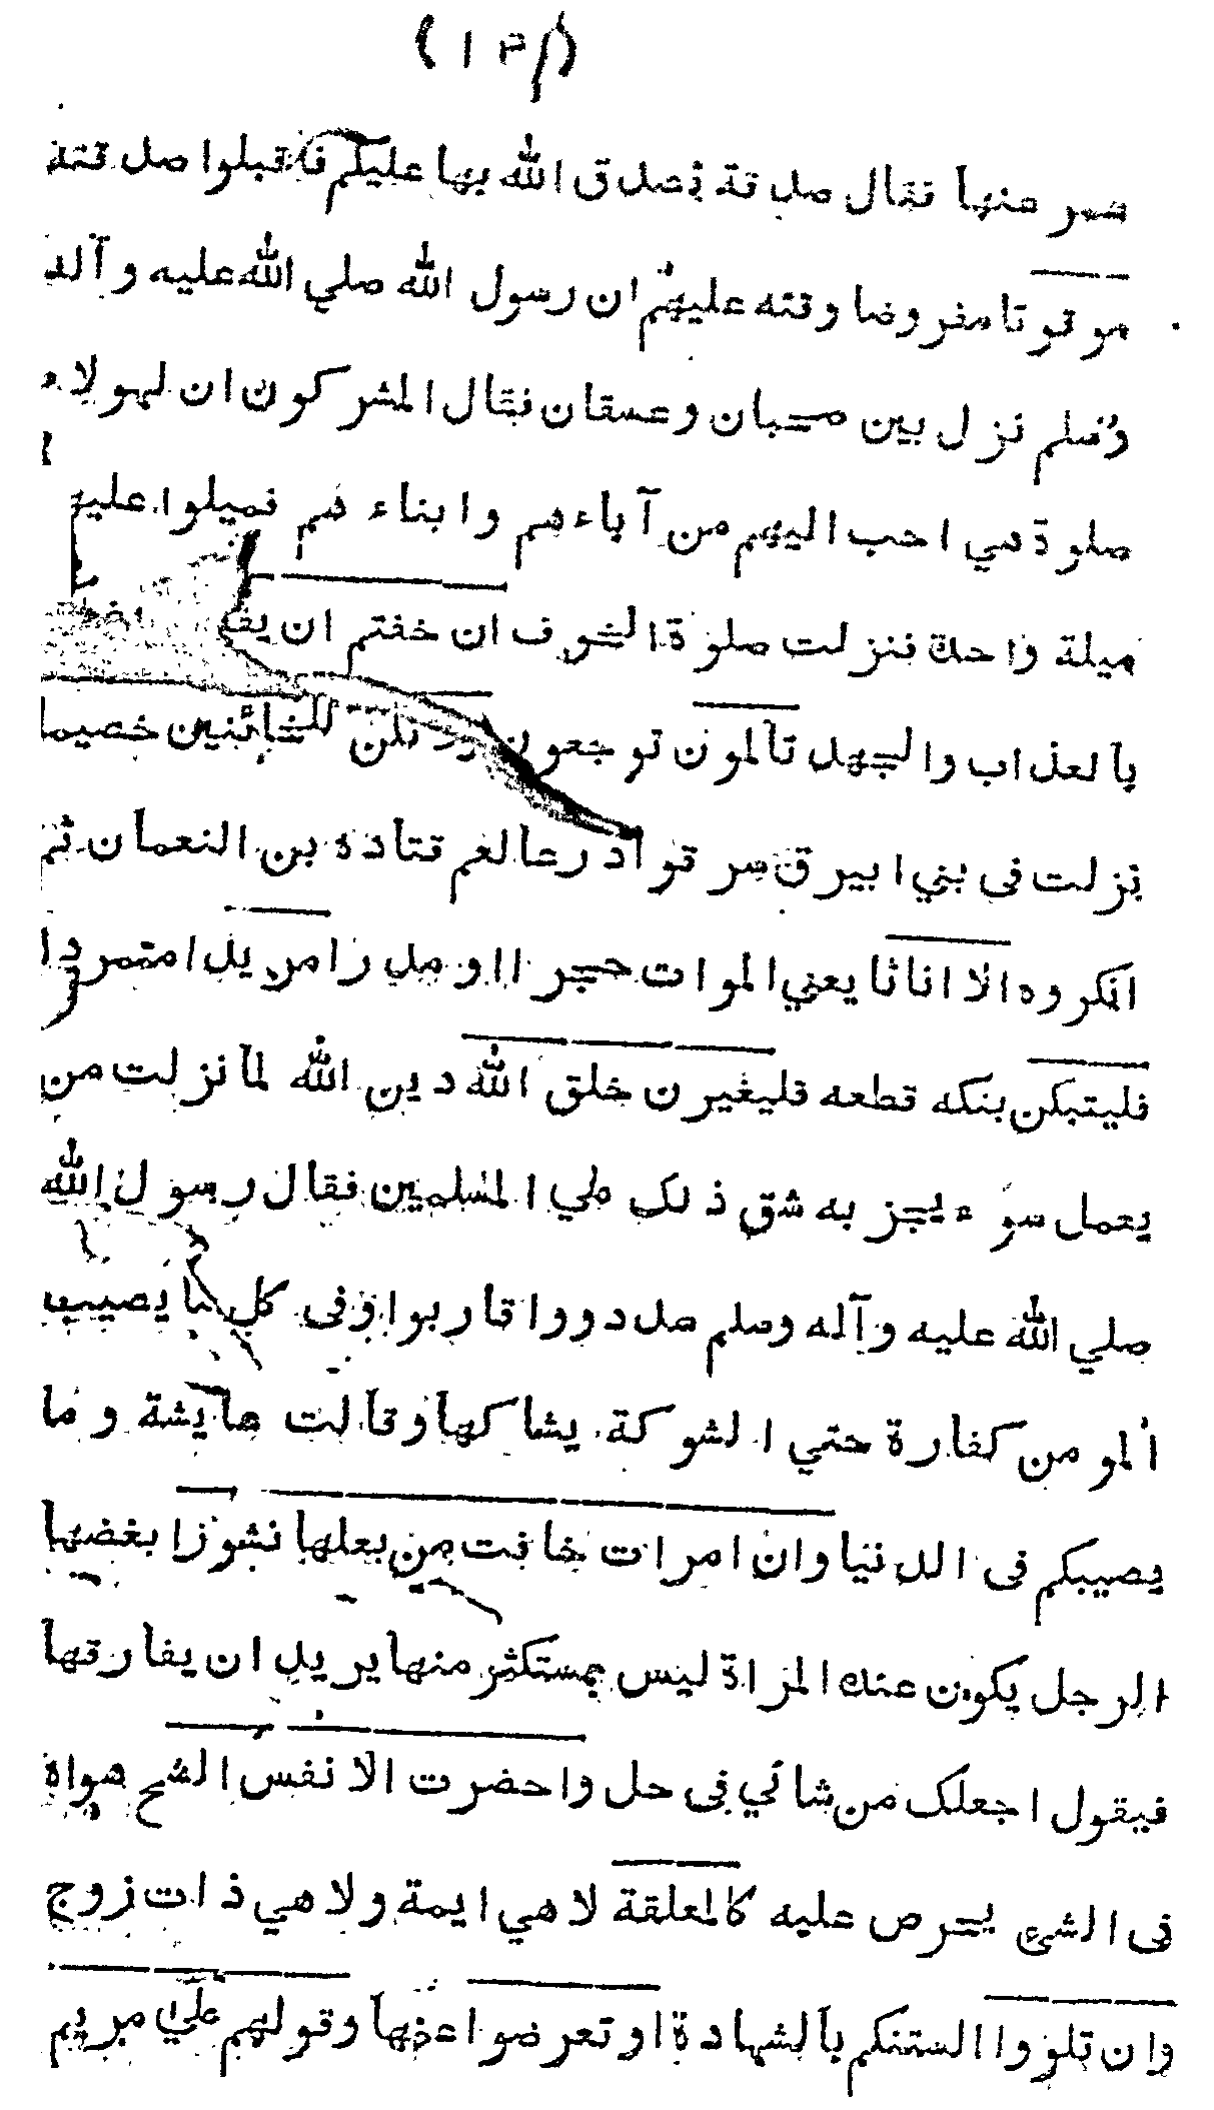 عمر منها فقال صدقة تصدق الله بها عليكم فاقبلوا صدقته
موقوتا مفروضا وقته عليهم ان رسول الله صلي الله عليه وآله
وسلم نزل بين ضجنان وعسفان فقال المشركون ان لهولاء
صلوة هي احب اليهم من آباءهم وابناء هم فميلوا عليهم
ميلة واحدة فنزلت صلوة الخوف ان خفتم ان
بالعذاب والجهد تألمون توجعون ولا تكن للخائنين خصيما
نزلت فى بني ابيرق سرقوا درعا لعم قتاده بن النعمان ثم
انكروه الا اناثا يعني الموات حجرا او مدرا مريدا متمردا
فليتبكن بتكه قطعه فليغيرن خلق الله دين الله لما نزلت من
يعمل سوء يجز به شق ذلك علي المسلمين فقال رسول الله
صلي الله عليه وآله وسلم سددوا وقاربوا وفى كل ما يصيب
المومن كفارة حتي الشوكة يشاكها وقالت عايشة وما
يصيبكم فى الدنيا وان امرات خافت من بعلها نشوزا بغضها
الرجل يكون عنده المراة ليس بمستكثر منها يريد ان يفارقها
فيقول اجعلك من شائي فى حل واحضرت الا نفس الشح هواة
فى الشئ يحرص عليه كالمعلقة لا هي ايمة ولا هي ذات زوج
وان تلووا السنتكم بالشهادة او تعرضوا عنها وقولهم علي مريم